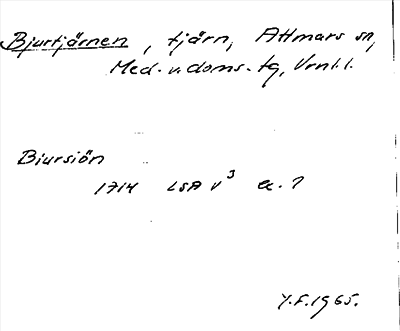 Bjurtjärnen, tjärn, Attmars sn,
Med. v. doms. tg, Vrnl. l.
Biursiön
1714 LSA V³ a. 1
Y.F. 1965.